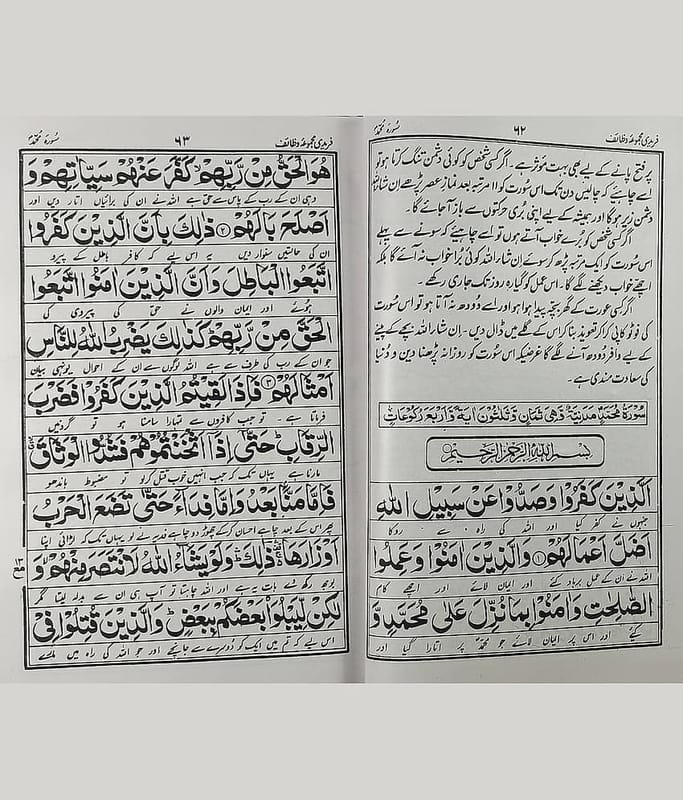 فریدی مجموعہ وظائف ۶۲ سُورۃ مُحمّد
پر فتح پانے کے لیے بھی بہت مؤثر ہے۔ اگر کسی شخص کو کوئی دشمن تنگ کرتا ہو تو
اسے چاہیئے کہ چالیس دن تک اس سُورت کو ۱۱ مرتبہ بعد نمازِ عصر پڑھے اِن شاءاللہ
دشمن زیر ہو گا اور ہمیشہ کے لیے اپنی بُری حرکتوں سے باز آ جائے گا۔
اگر کسی شخص کو بُرے خواب آتے ہوں تو اسے چاہیئے کہ سونے سے پہلے
اس سُورت کو ایک مرتبہ پڑھ کر سوئے اِن شاء اللہ کوئی بُرا خواب نہ آئے گا بلکہ
اچھے خواب دیکھنے لگے گا۔ اس عمل کو گیارہ روز تک جاری رکھے۔
اگر کسی عورت کے گھر بچہ پیدا ہوا ہو اور اسے دُودھ نہ آتا ہو تو اس سُورت
کی فوٹو کاپی کرا کر تعویذ بنا کر اس کے گلے میں ڈال دیں۔ اِن شاء اللہ بچے کے پینے
کے لیے وافر دُودھ آنے لگے گا غرضیکہ اس سُورت کو روزانہ پڑھنا دین و دُنیا
کی سعادت مندی ہے۔
سُوْرَةُ مُحَمَّدٍ مَدَنِيَّةٌ وَّهِيَ ثَمَانٍ وَّثَلٰثُوْنَ اٰيَةً وَّاَرْبَعُ رُكُوْعَاتٍ
بِسْمِ اللهِ الرَّحْمٰنِ الرَّحِيْمِ
اَلَّذِيْنَ كَفَرُوْا وَصَدُّوْا عَنْ سَبِيْلِ اللهِ
جنہوں نے کفر کیا اور اللہ کی راہ سے روکا
اَضَلَّ اَعْمَالَهُمْ ۱ وَالَّذِيْنَ اٰمَنُوْا وَعَمِلُوا
اللہ نے ان کے عمل برباد کئے اور ایمان لائے اور اچھے کام
الصّٰلِحٰتِ وَاٰمَنُوْا بِمَا نُزِّلَ عَلٰى مُحَمَّدٍ وَّ
کیے اور اس پر ایمان لائے جو محمدؐ پر اتارا گیا اور
فریدی مجموعہ وظائف ۶۳ سُورۃ مُحمّد
هُوَ الْحَقُّ مِنْ رَّبِّهِمْ كَفَّرَ عَنْهُمْ سَيِّاٰتِهِمْ وَ
وہی ان کے رب کے پاس سے حق ہے اللہ نے ان کی برائیاں اتار دیں اور
اَصْلَحَ بَالَهُمْ ۲ ذٰلِكَ بِاَنَّ الَّذِيْنَ كَفَرُوا
ان کی حالتیں سنوار دیں یہ اس لیے کہ کافر باطل کے پیرو
اتَّبَعُوا الْبَاطِلَ وَاَنَّ الَّذِيْنَ اٰمَنُوا اتَّبَعُوا
ہوئے اور ایمان والوں نے حق کی پیروی کی
الْحَقَّ مِنْ رَّبِّهِمْ كَذٰلِكَ يَضْرِبُ اللهُ لِلنَّاسِ
جو ان کے رب کی طرف سے ہے اللہ لوگوں سے ان کے احوال یونہی بیان
اَمْثَالَهُمْ ۳ فَاِذَا لَقِيْتُمُ الَّذِيْنَ كَفَرُوْا فَضَرْبَ
فرماتا ہے۔ تو جب کافروں سے تمہارا سامنا ہو تو گردنیں
الرِّقَابِ حَتّٰى اِذَا اَثْخَنْتُمُوْهُمْ فَشُدُّوا الْوَثَاقَ
مارنا ہے یہاں تک کہ جب انہیں خوب قتل کر لو تو مضبوط باندھو
فَاِمَّا مَنًّا بَعْدُ وَاِمَّا فِدَاءً حَتّٰى تَضَعَ الْحَرْبُ
پھر اس کے بعد چاہے احسان کر کے چھوڑ دو چاہے فدیہ لے لو یہاں تک کہ لڑائی اپنا
اَوْزَارَهَا ذٰلِكَ وَلَوْ يَشَاءُ اللهُ لَانْتَصَرَ مِنْهُمْ وَ
بوجھ رکھ دے بات یہ ہے اور اللہ چاہتا تو آپ ہی ان سے بدلہ لیتا مگر
لٰكِنْ لِّيَبْلُوَا بَعْضَكُمْ بِبَعْضٍ وَالَّذِيْنَ قُتِلُوْا فِيْ
اس لیے کہ تم میں ایک کو دوسرے سے جانچے اور جو اللہ کی راہ میں مارے